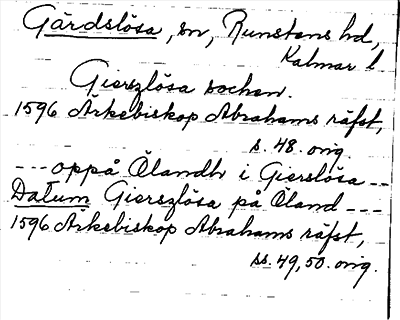 Gärdslösa, sn, Runstens hd,
Kalmar l
Gierszlösa sochen.
1596 Ärkebiskop Abrahams räfst,
s. 48. orig.
--- oppå Ölandh i Gierslösa --
Datum Gierszlösa på Öland ---
1596 Ärkebiskop Abrahams räfst,
ss. 49, 50. orig.